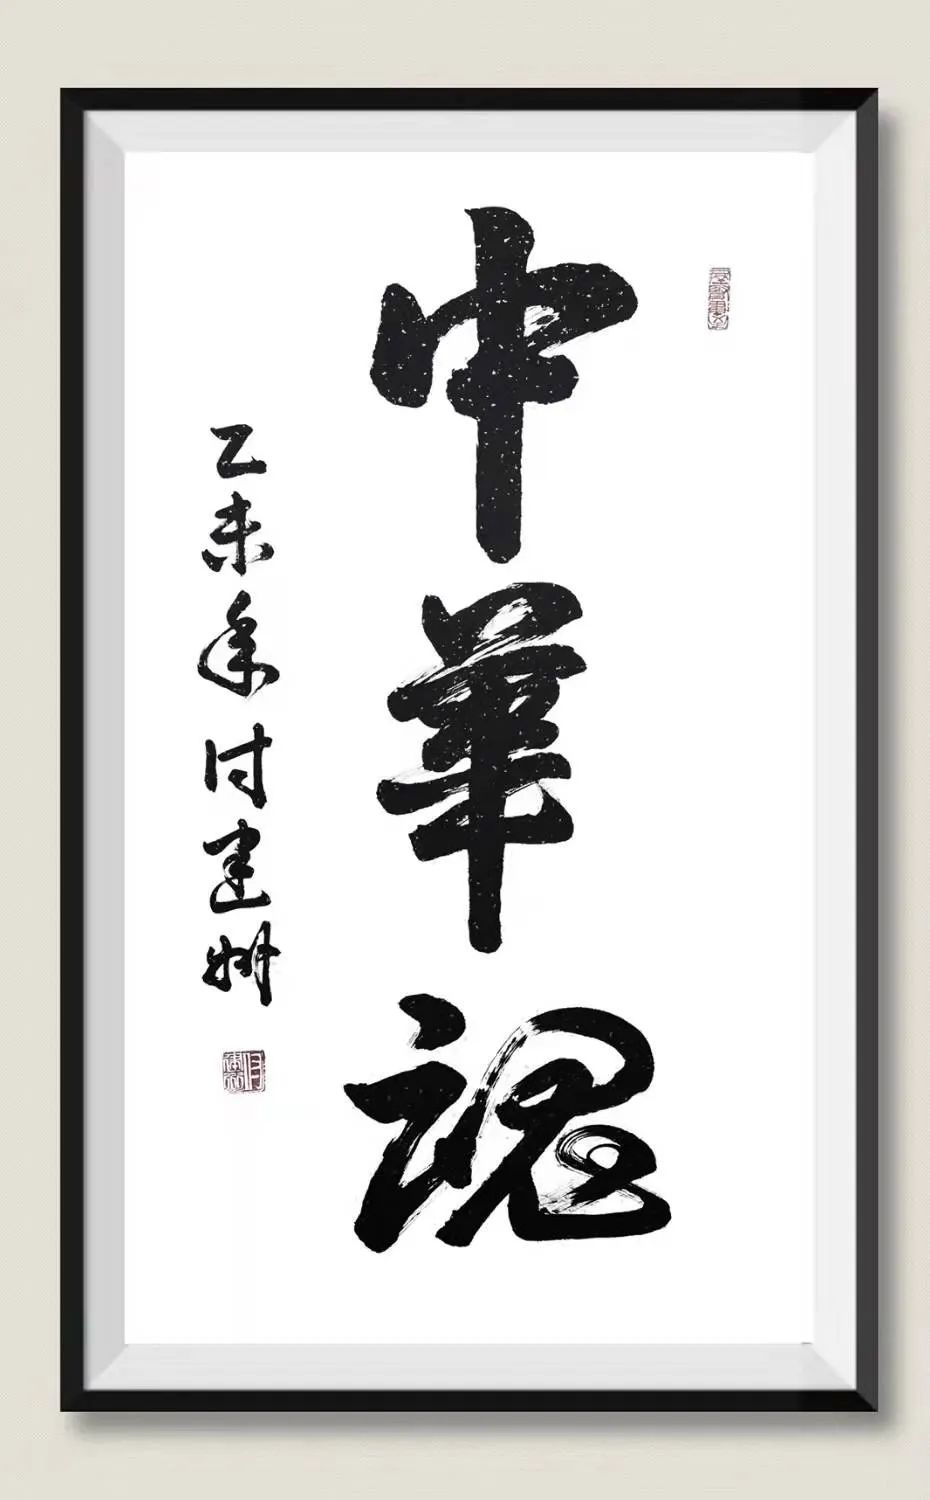 中華魂
乙未年付建州